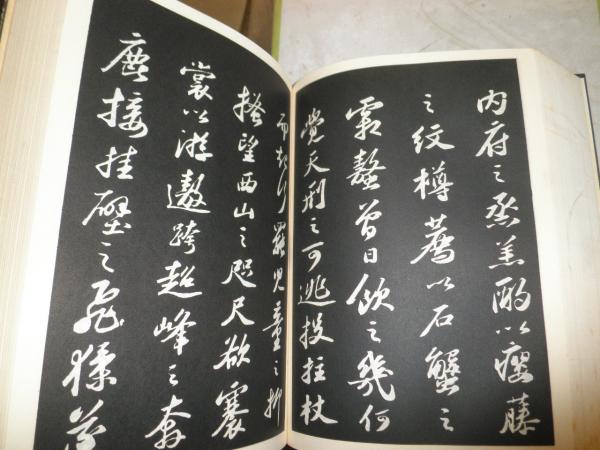 内府之烝羔酌以癭藤
之紋樽薦以石蟹之
霜螯曾日飲之幾何
覺天刑之可逃投拄杖
而起行罷兒童之抑
搔望西山之咫尺欲褰
裳以游遨跨超峰之奔
鹿接挂壁之飛猱